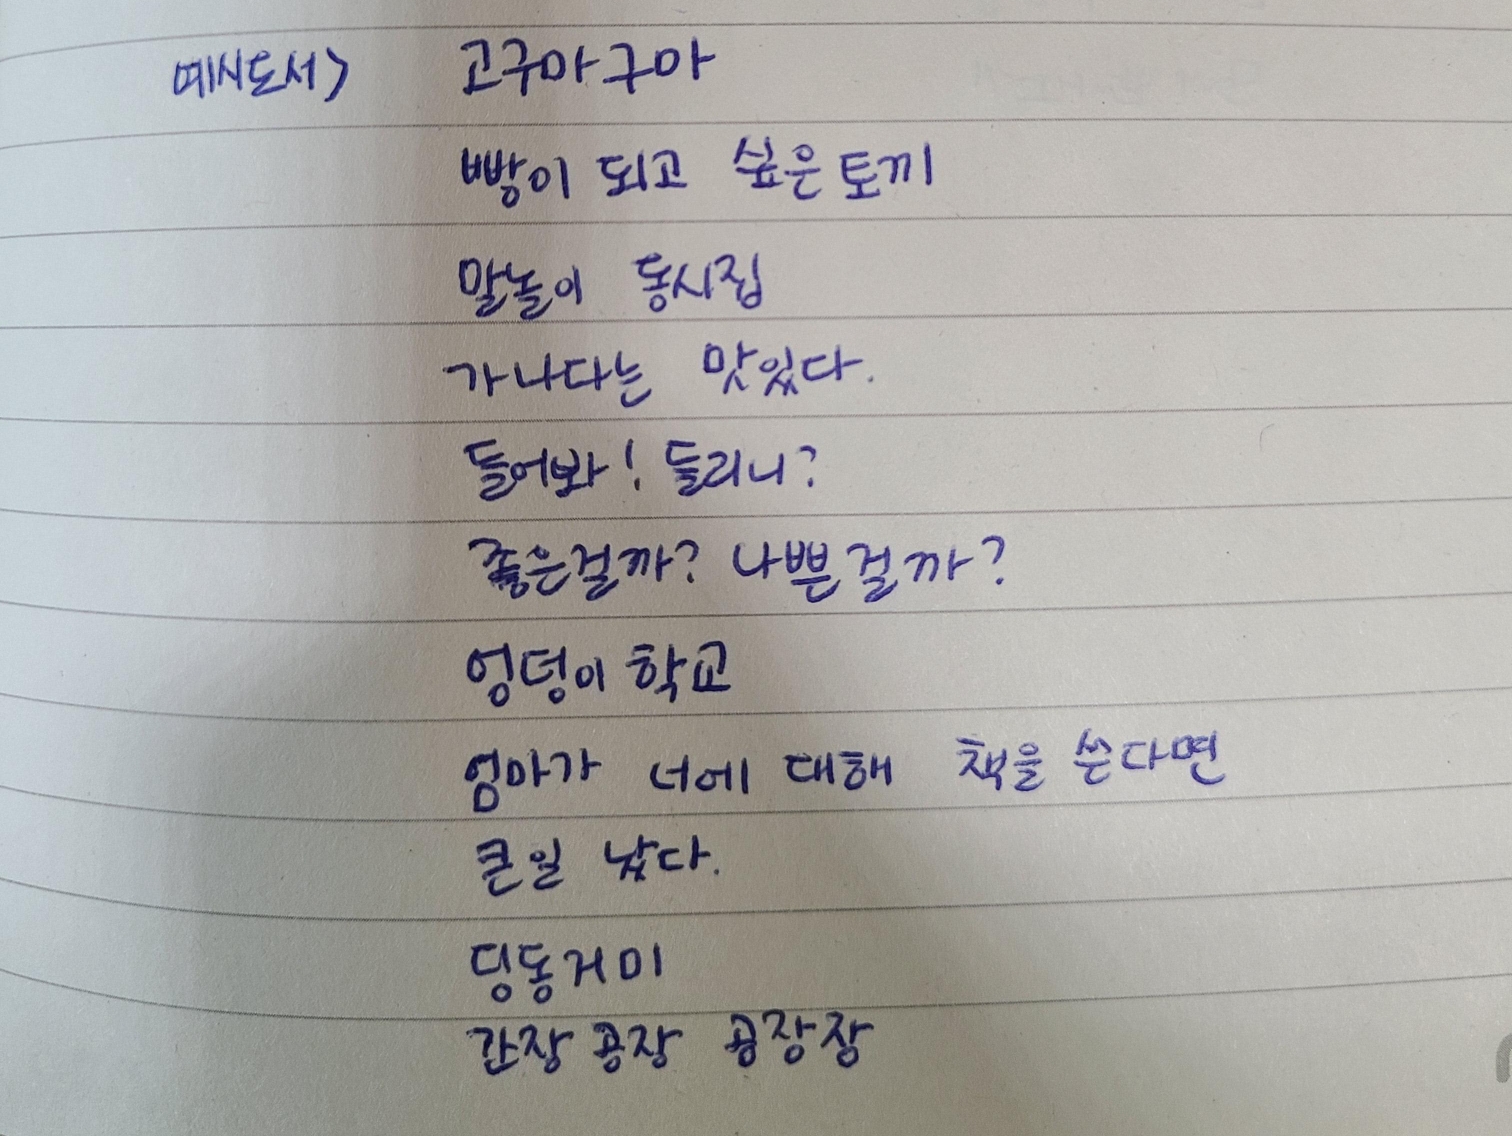 예시도서> 고구마구마
빵이 되고 싶은 토끼
말놀이 동시집
가나다는 맛있다.
들어봐! 들리니?
좋은걸까? 나쁜걸까?
엉덩이 학교
엄마가 너에 대해 책을 쓴다면
큰일 났다.
딩동거미
간장 공장 공장장